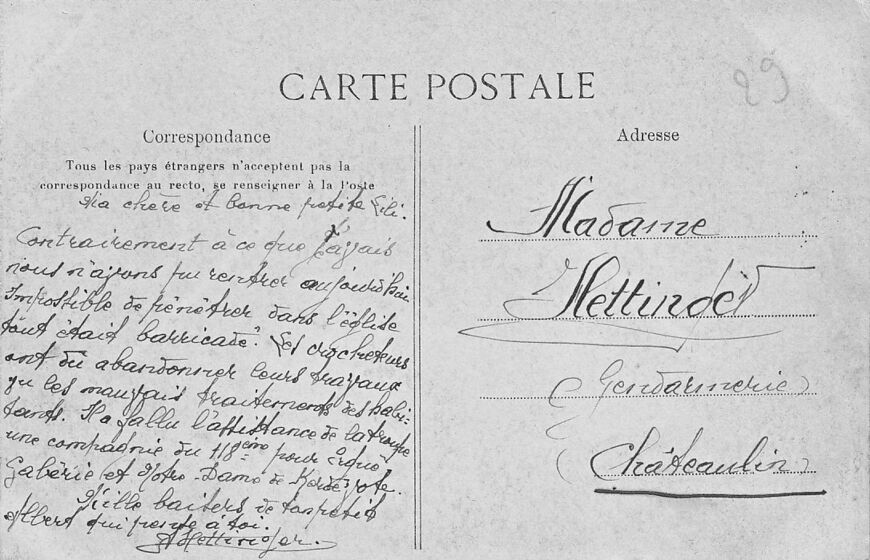 29
CARTE POSTALE
Correspondance
Tous les pays étrangers n'acceptent pas la
correspondance au recto, se renseigner à la Poste
Ma chère et bonne petite Lili.
Contrairement à ce que j'avais
nous n'avons pu rentrer aujourd'hui
Impossible de pénétrer dans l'église
tout était barricadé. Les crocheteurs
ont du abandonner leurs travaux
vu les mauvais traitements des habi-
tants. Il a fallu l'assistance de la troupe
une compagnie du 118ème pour Ergué
Gabéric et Notre-Dame de Kerdévote.
Mille baisers de ton petit
Albert qui pense à toi.
AHettinger.
Adresse
Madame
Gendarmerie
Châteaulin